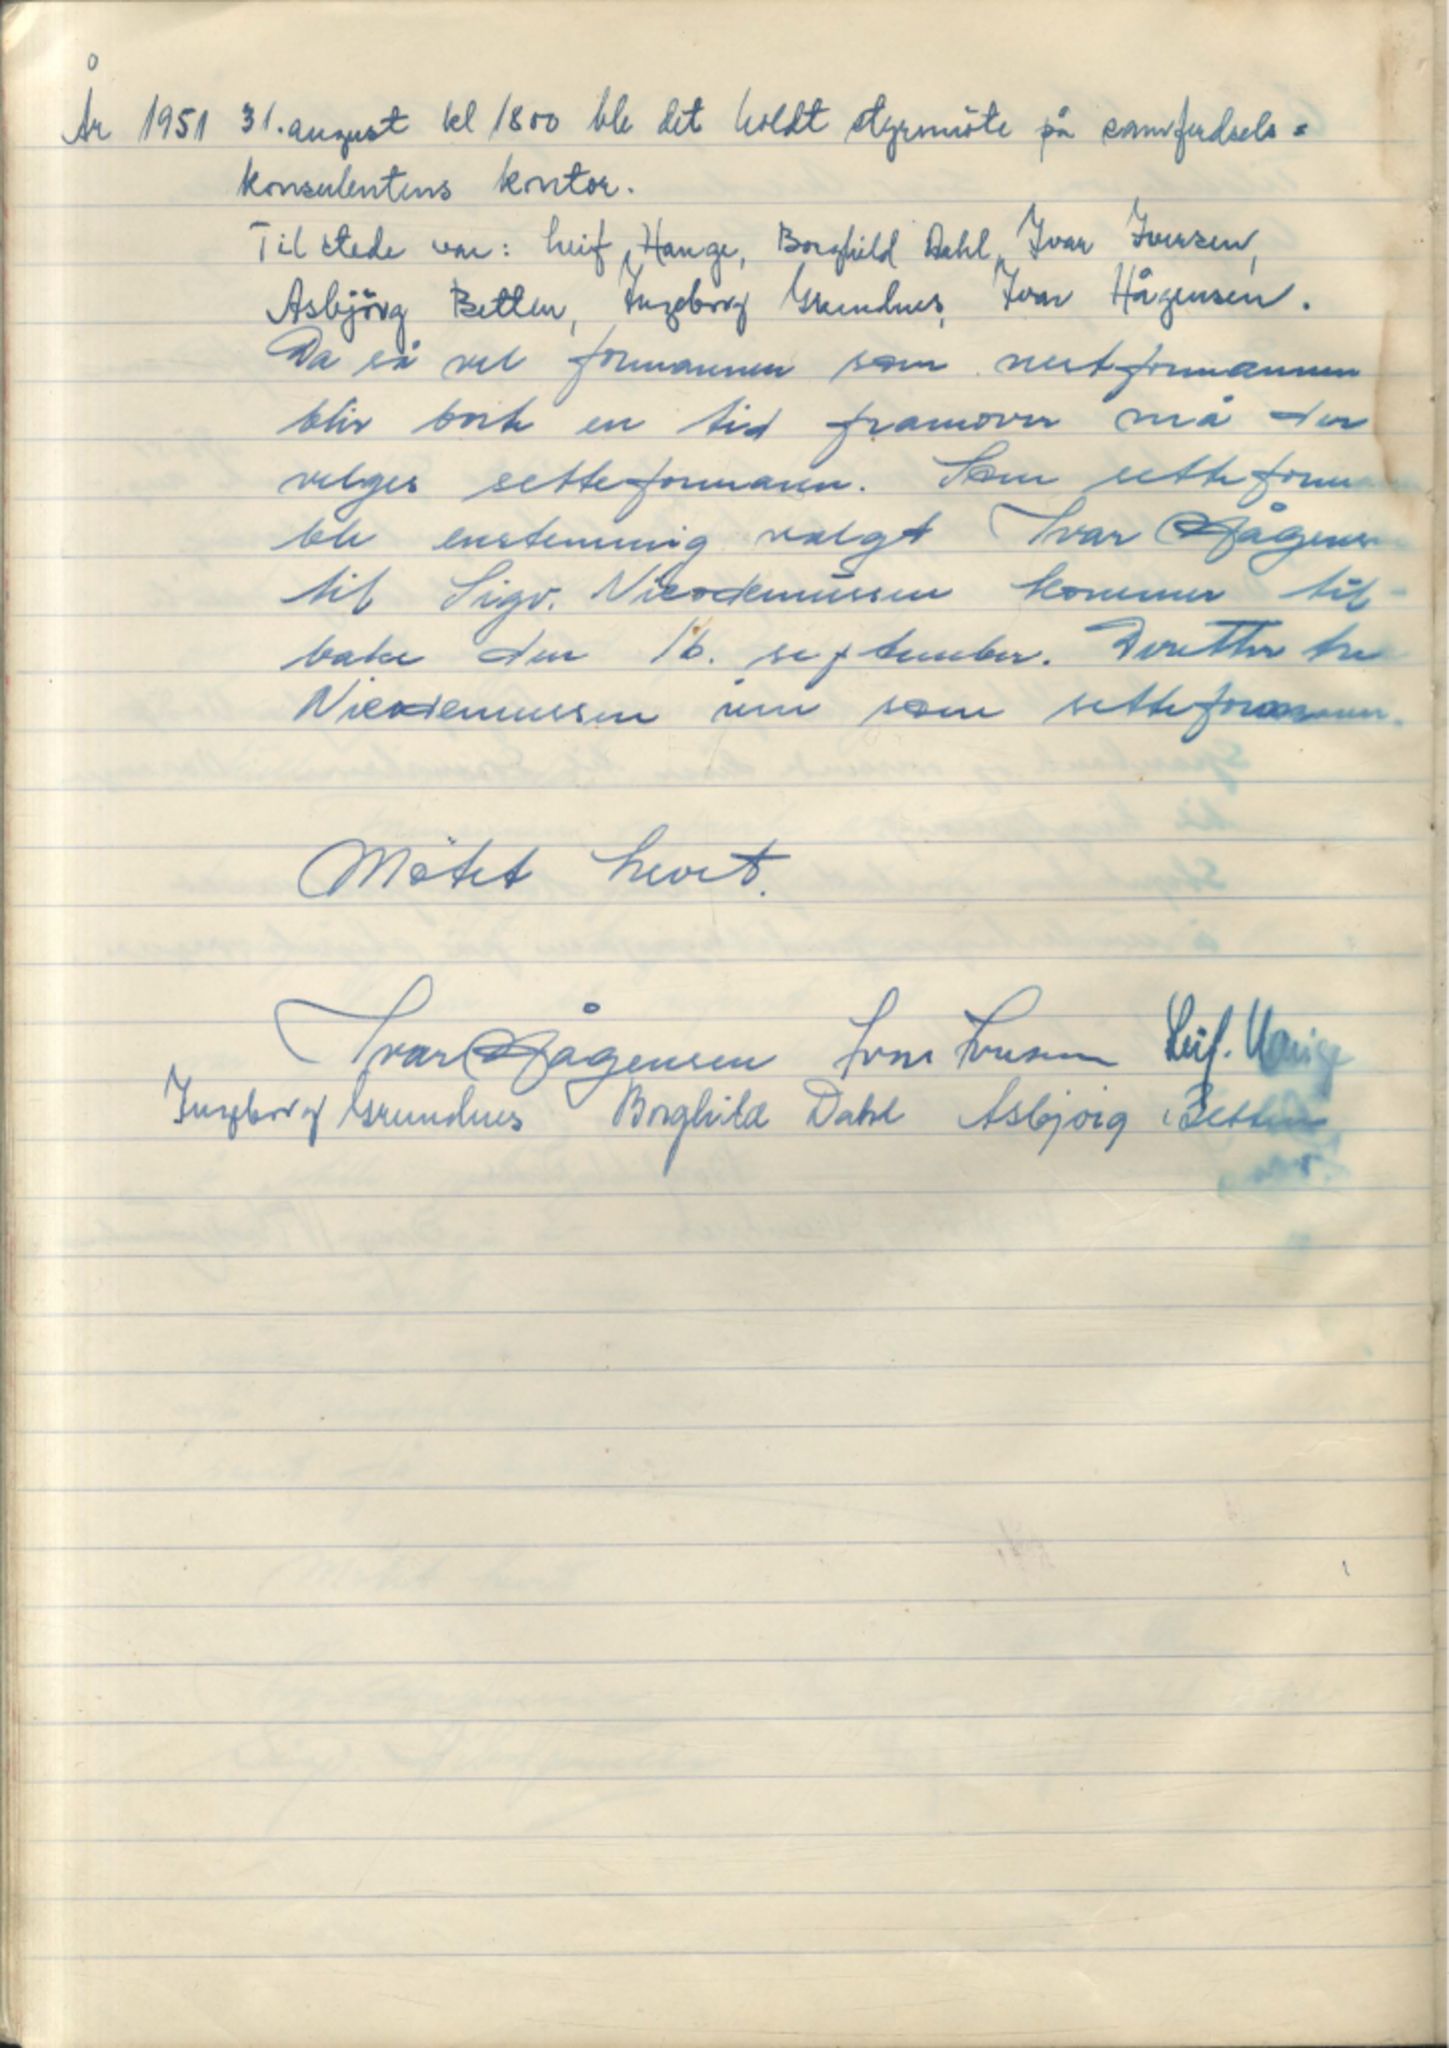 År 1951 31. august kl 1800 ble det holdt styremöte på samferdsels=
konsulentens kontor.
Til stede var: Leif Hauge, Borghild Dahl, Ivar Iversen,
Asbjörg Betten, Ingeborg Grundnes, Ivar Hågensen.
Da så vel formannen som nestformannen
blir bort en tid framover må der
velges setteformann. Som setteform
ble enstemmig valgt Ivar Hågens
til Sigv. Nicodemussen kommer til-
bake den 16. september. Deretter tre
Nicodemussen inn som setteformann.
Møtet hevet.
Ivar Hågensen Ivar Iversen Leif. Hauge
Ingeborg Grundnes Borghild Dahl Asbjörg Betten